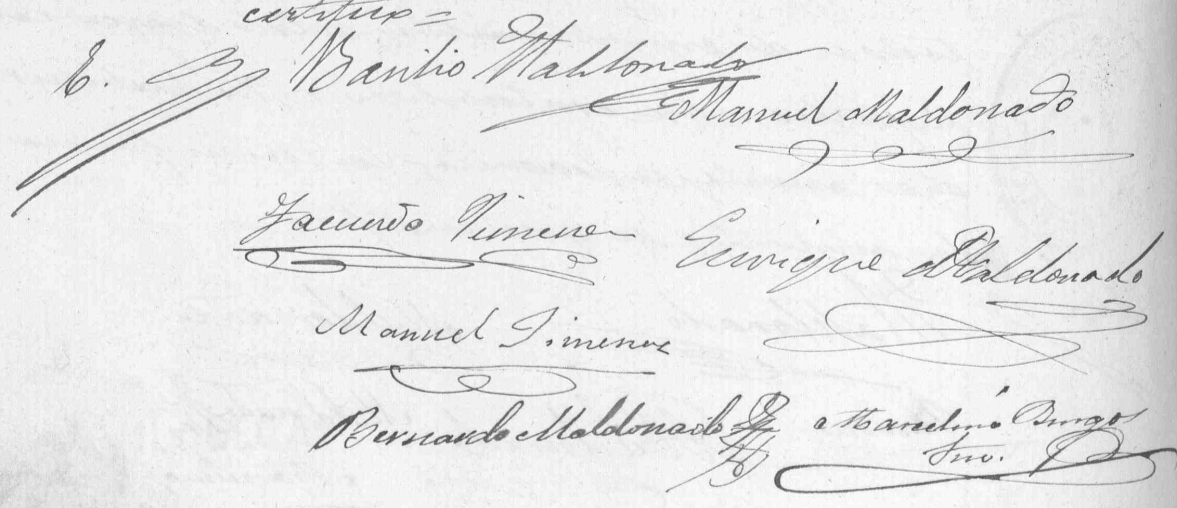 certifico =
E. Basilio Maldonado
Manuel Maldonado
Facundo Jimenez Enrique Maldonado
Manuel Jimenez
Bernardo Maldonado Marcelino Burgos
Srio.